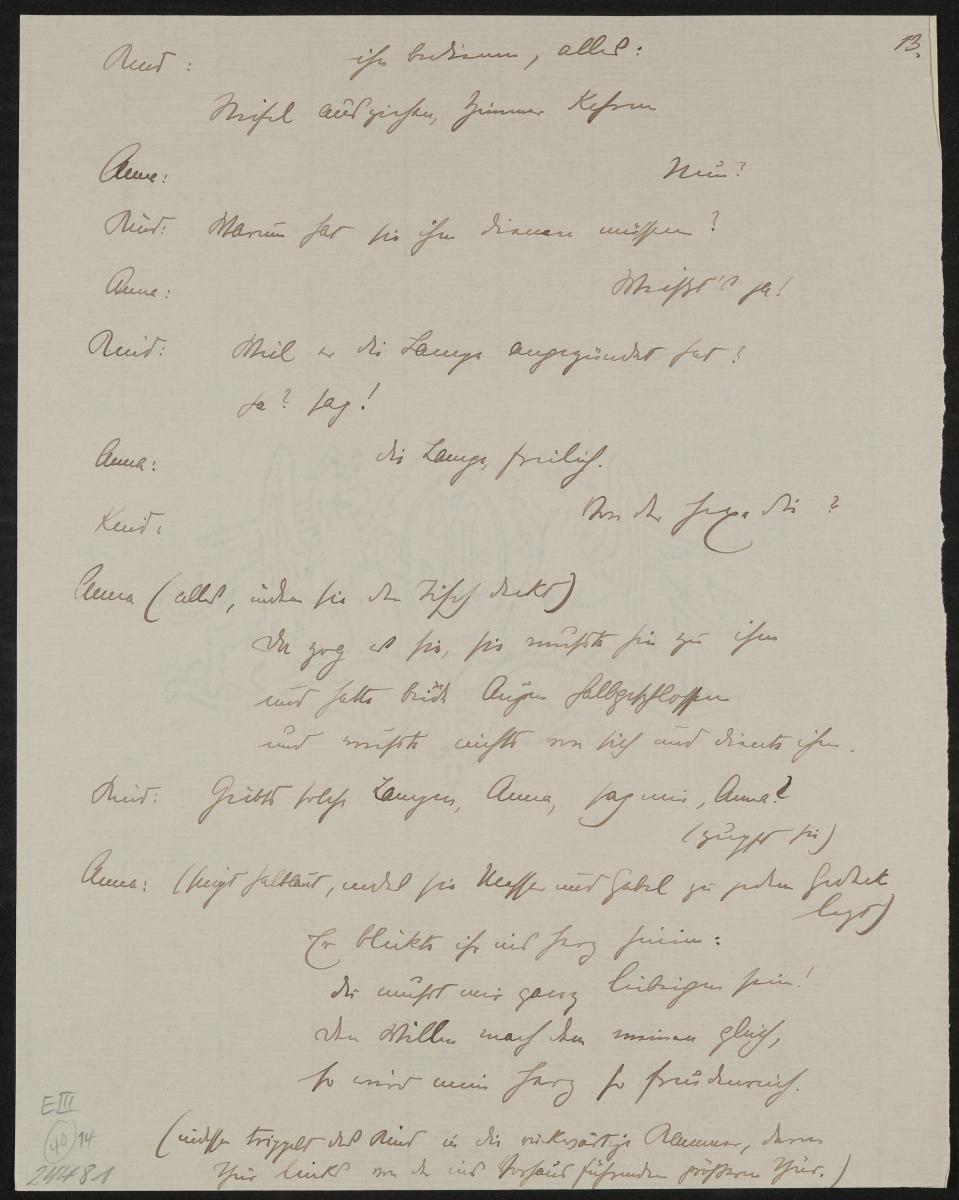 13.
Kind: ihn bedienen, alles:
Stiefel ausziehen, Zimmer kehren
Anna: Nun?
Kind: Warum hat sie ihm dienen müssen?
Anna: Weißt's ja!
Kind: Weil er die Lampe angezündet hat?
Ja? sag!
Anna: die Lampe, freilich.
Kind: Von der Hexe die?
Anna (alles, indem sie den Tisch deckt)
Da zog es sie, sie mußte hin zu ihm
und hatte beide Augen halbgeschlossen
und wußte nichts von sich und diente ihm.
Kind: Giebts solche Lampen, Anna, sag mir, Anna?
(zupft sie)
Anna: (singt halblaut, indes sie Messer und Gabel zu jedem Gedeck
legt)
Er blickte ihr ins Herz hinein:
die mußt mir ganz leibeigen sein!
Den Willen mach dem meinen gleich,
so wird mein Herz so freudenreich.
(indessen trippelt das Kind in die rückwärtige Kammer, deren
Thür links von der ins Vorhaus führenden größeren Thür.)
E III
40 14
24481